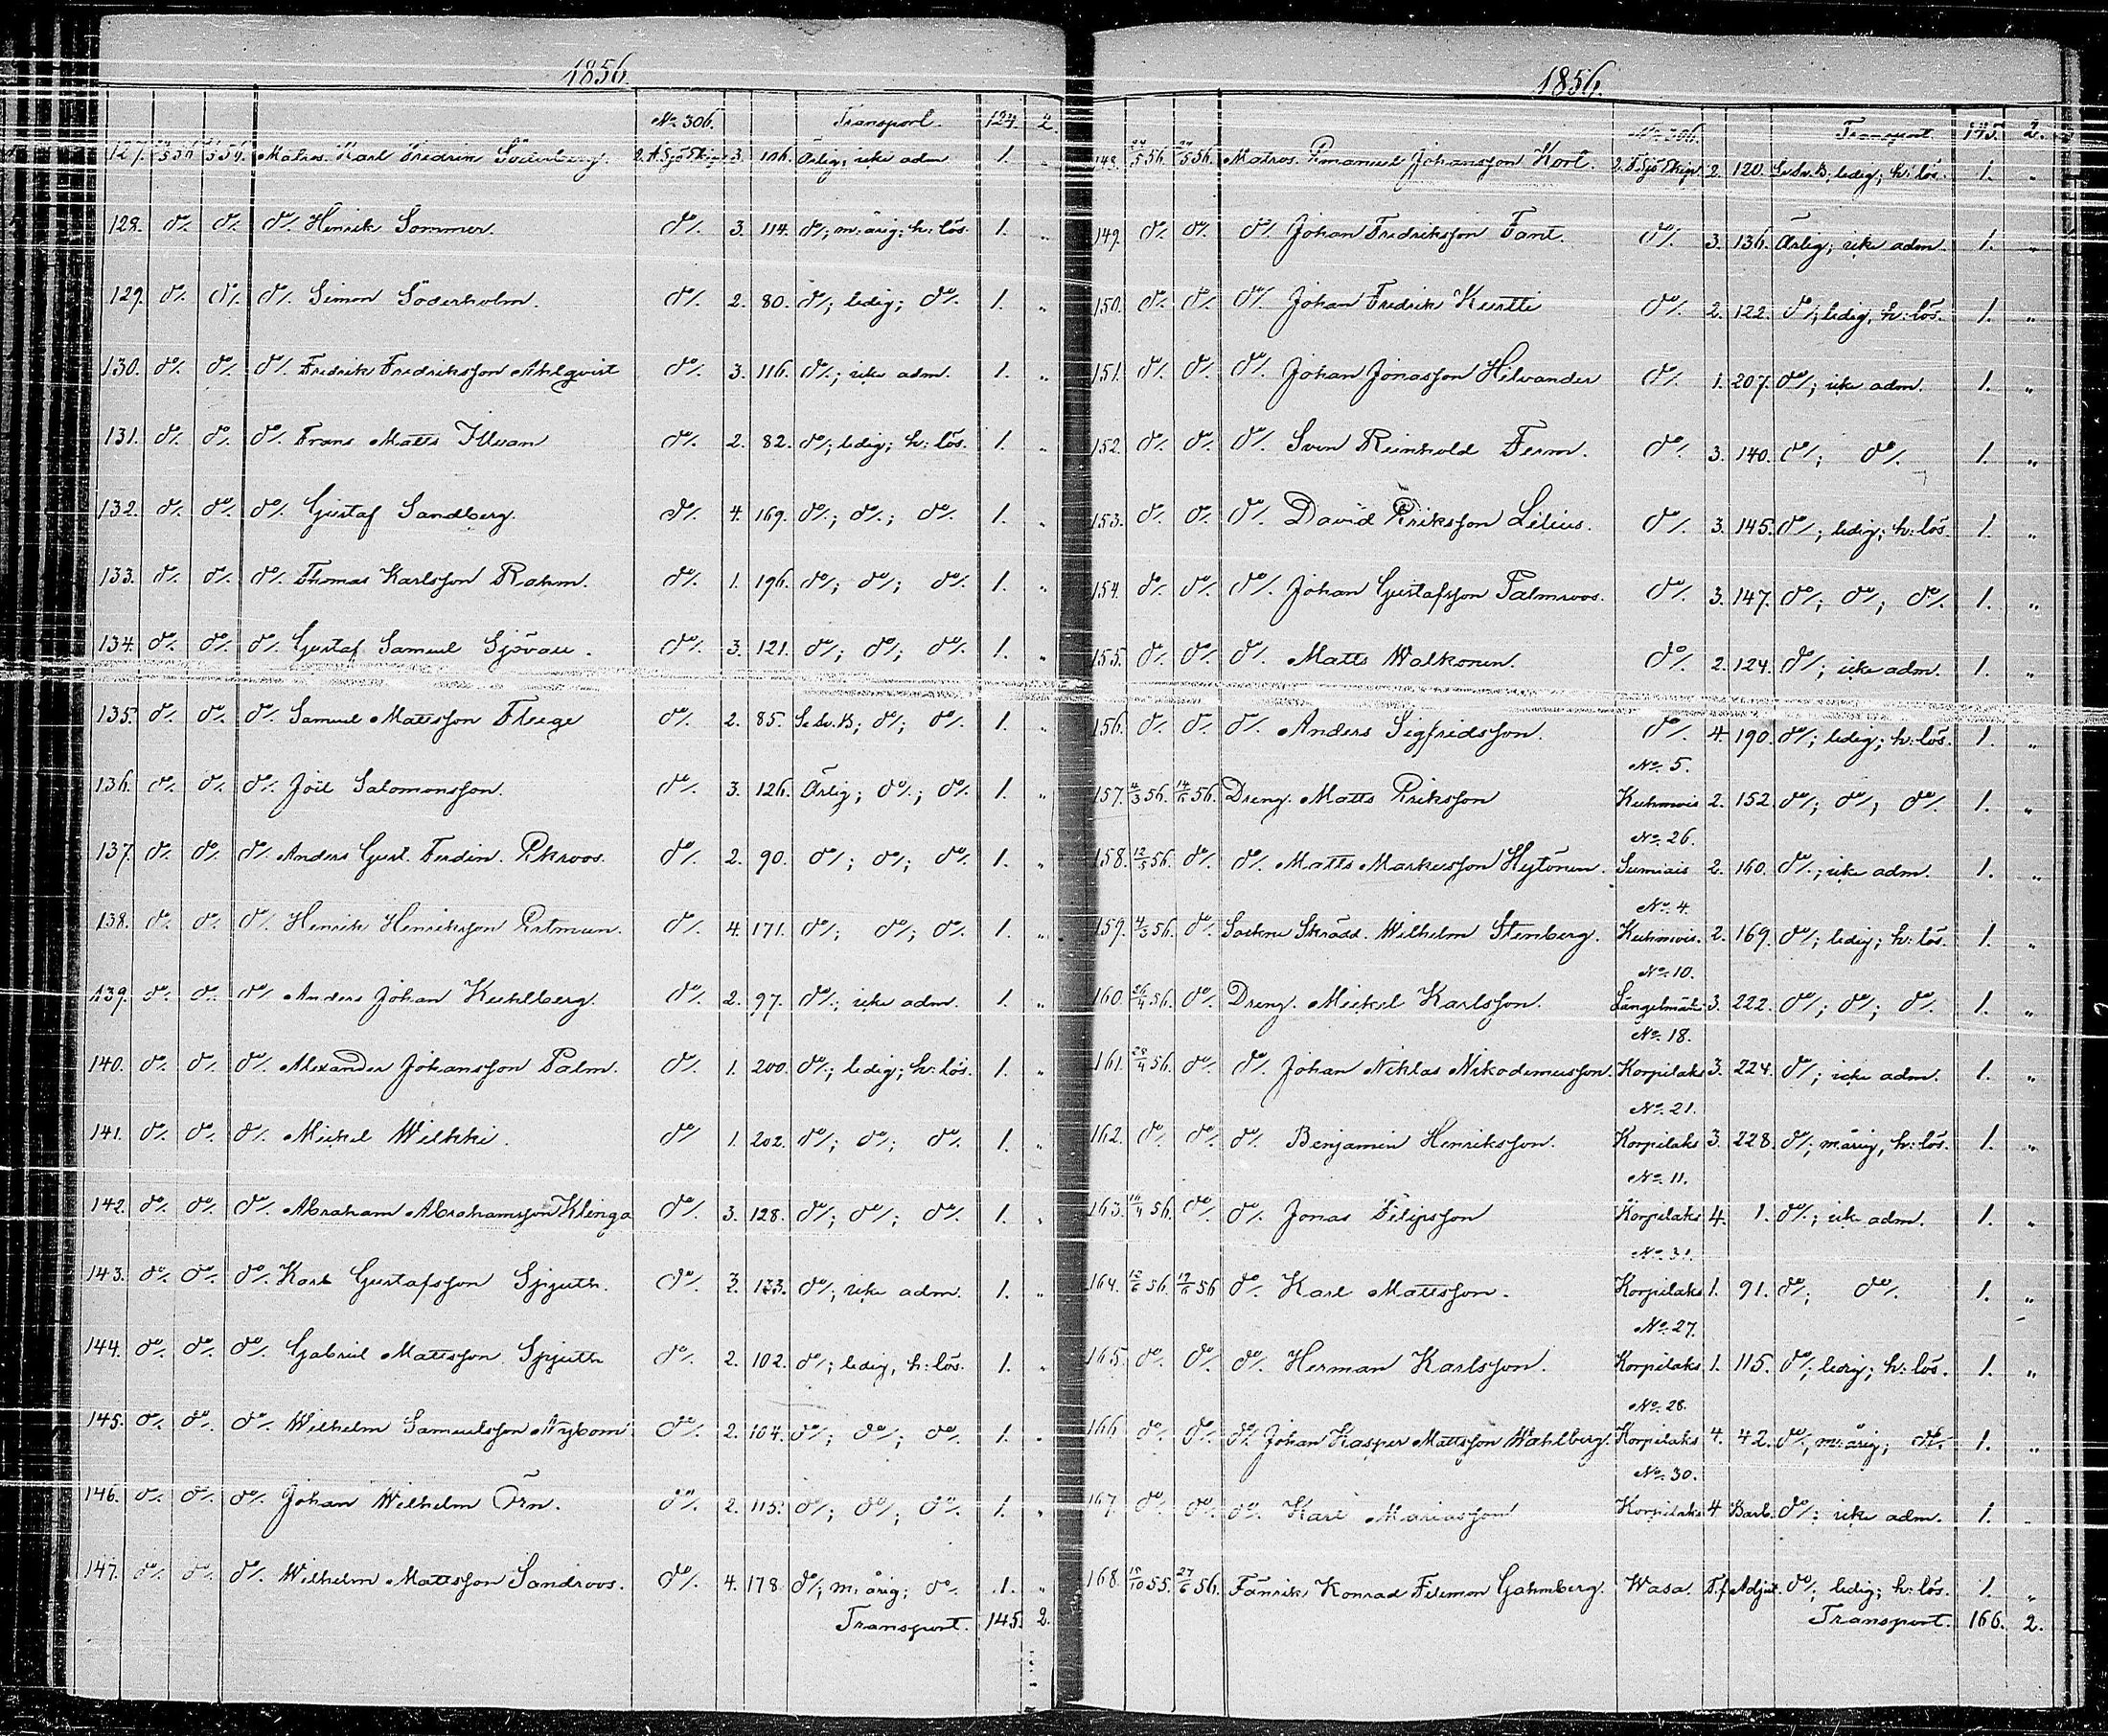 1856.
No 306. Transport. 124. 2.
127. Matros. Karl Fredrik Söderberg. 2. F. Sjö Ekip. 3. 106. Ärlig; icke adm. 1. "
128. do/. do/. do/. Henrik Sommer. do/. 3. 114. do/.; m: årig; h: lös. 1. "
129. do/. do/. do/. Simon Söderholm. do/. 2. 80. do/.; ledig; do/. 1. "
130. do/. do/. do/. Fredrik Fredriksson Ahlqvist do/. 3. 116. do/.; icke adm. 1. "
131. do/. do/. do/. Frans Matts Illman do/. 2. 82. do/.; ledig; h: lös. 1. "
132. do/. do/. do/. Gustaf Sandberg. do/. 4. 169. do/.; do/.; do/. 1. "
133. do/. do/. do/. Thomas Karlsson Rahm. do/. 1. 196. do/.; do/.; do/. 1. "
134. do/. do/. do/. Gustaf Samuel Sjövall. do/. 3. 121. do/.; do/.; do/. 1. "
135. do/. do/. do/. Samuel Mattsson Fluge do/. 2. 85. Sv. B; do/.; do/. 1. "
136. do/. do/. do/. Joel Salomonsson. do/. 3. 126. Ärlig; do/.; do/. 1. "
137. do/. do/. do/. Anders Gust. Ferdin. Ekroos. do/. 2. 90. do/.; do/.; do/. 1. "
138. do/. do/. do/. Henrik Henriksson Estman. do/. 4. 171. do/.; do/.; do/. 1. "
139. do/. do/. do/. Anders Johan Kuhlberg. do/. 2. 97. do/.; icke adm. 1. "
140. do/. do/. do/. Alexander Johansson Palm. do/. 1. 200. do/.; ledig; h: lös. 1. "
141. do/. do/. do/. Mickel Wilkki. do/. 1. 202. do/.; do/.; do/. 1. "
142. do/. do/. do/. Abraham Abrahamsson Klinga do/. 3. 128. do/.; do/.; do/. 1. "
143. do/. do/. do/. Karl Gustafsson Spjuth. do/. 3. 133. do/.; icke adm. 1. "
144. do/. do/. do/. Gabriel Mattsson Spjuth do/. 2. 102. do/.; ledig, h: lös. 1. "
145. do/. do/. do/. Wilhelm Samuelsson Nybom. do/. 2. 104. do/.; do/.; do/. 1. "
146. do/. do/. do/. Johan Wilhelm Örn. do/. 2. 115. do/.; do/.; do/. 1. "
147. do/. do/. do/. Wilhelm Mattsson Sandroos. do/. 4. 178. do/.; m: årig; do/. 1. "
Transport. 145. 2.
1856.
No 306. Transport. 145. 2.
148. 24/5 56. 24/5 56. Matros. Emanuel Johansson Kort. 2. F. Sjö Ekip. 2. 120. Sv. B; ledig; h: lös. 1. "
149. do/. do/. do/. Johan Fredriksson Fant. do/. 3. 136. Ärlig; icke adm. 1. "
150. do/. do/. do/. Johan Fredrik Kurtti do/. 2. 122. do/.; ledig, h: lös. 1. "
151. do/. do/. do/. Johan Jonasson Hilvander do/. 1. 207. do/.; icke adm. 1. "
152. do/. do/. do/. Sven Reinhold Ferm. do/. 3. 140. do/.; do/. 1. "
153. do/. do/. do/. David Eriksson Lilius. do/. 3. 145. do/.; ledig; h: lös. 1. "
154. do/. do/. do/. Johan Gustafsson Palmroos. do/. 3. 147. do/.; do/.; do/. 1. "
155. do/. do/. do/. Matts Walkonen. do/. 2. 124. do/.; icke adm. 1. "
156. do/. do/. do/. Anders Sigfridsson. do/. 4. 190. do/.; ledig; h: lös. 1. "
No 5.
157. 4/3 56. 14/6 56. Dreng. Matts Eriksson Kuhmois 2. 152. do/.; do/.; do/. 1. "
No 26.
158. 12/5 56. do/. do/. Matts Markusson Hytönen. Sumiais 2. 160. do/.; icke adm. 1. "
No 4.
159. 4/3 56. do/. Sockne Skrädd. Wilhelm Stenberg. Kuhmois. 2. 169. do/.; ledig; h: lös. 1. "
No 10.
160. 26/4 56. do/. Dreng. Mickel Karlsson. Längelmäki 3. 222. do/.; do/.; do/. 1. "
No 18.
161. 28/4 56. do/. do/. Johan Niklas Nikodemusson. Korpilaks 3. 224. do/.; icke adm. 1. "
No 21.
162. do/. do/. do/. Benjamin Henriksson. Korpilaks 3. 228. do/.; m: årig, h: lös. 1. "
No 11.
163. 16/4 56. do/. do/. Jonas Filipsson Korpilaks 4. 1. do/.; icke adm. 1. "
No 31.
164. 12/6 56. 17/6 56 do/. Karl Mattsson. Korpilaks 1. 91. do/.; do/. 1. "
No 27.
165. do/. do/. do/. Herman Karlsson. Korpilaks 1. 115. do/.; ledig; h: lös. 1. "
No 28.
166. do/. do/. do/. Johan Kasper Mattsson Wahlberg. Korpilaks 4. 42. do/.; m: årig; do/. 1. "
No 30.
167. do/. do/. do/. Karl Mariasson Korpilaks 4 Barb. do/.; icke adm. 1. "
168. 18/10 55. 27/6 56. Fänrik Konrad Filemon Gahmberg. Wasa. T.f. Adjut. do/.; ledig; h: lös. 1. "
Transport. 166. 2.